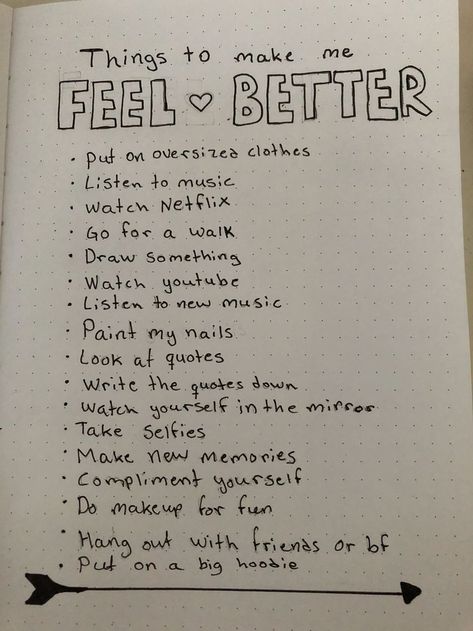 Things to make me
FEEL ♡ BETTER
• Put on oversized clothes
• Listen to music
• Watch Netflix
• Go for a walk
• Draw something
• Watch youtube
• Listen to new music
• Paint my nails
• Look at quotes
• Write the quotes down
• Watch yourself in the mirror
• Take selfies
• Make new memories
• Compliment yourself
• Do makeup for fun
• Hang out with friends or bf
• Put on a big hoodie